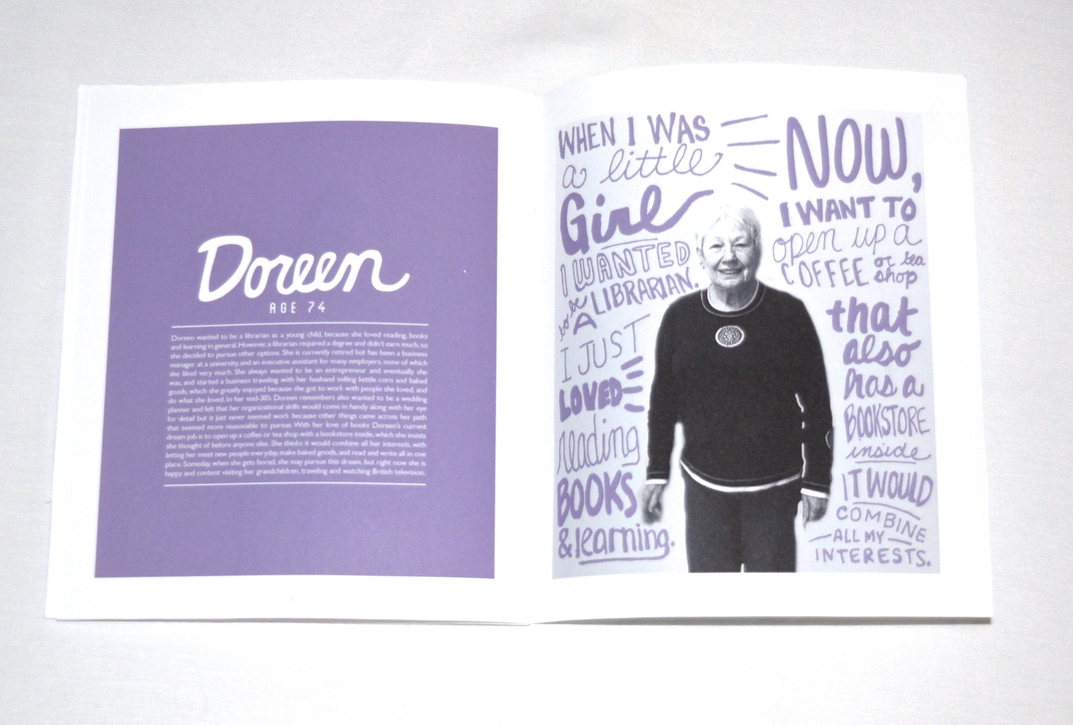 Doreen
AGE 74
Doreen wanted to be a librarian as a young child, because she loved reading, books
and learning in general. However, a librarian required a degree and didn't earn much, so
she decided to pursue other options. She is currently retired but has been a business
manager at a university, and an executive assistant for many employers, none of which
she liked very much. She always wanted to be an entrepreneur and eventually she
was, and started a business traveling with her husband selling kettle corn and baked
goods, which she greatly enjoyed because she got to work with people she loved, and
do what she loved. In her mid-30's Doreen remembers also wanted to be a wedding
planner and felt that her organizational skills would come in handy along with her eye
for detail but it just never seemed work because other things came across her path
that seemed more reasonable to pursue. With her love of books Doreen's current
dream job is to open up a coffee or tea shop with a bookstore inside, which she insists
she thought of before anyone else. She thinks it would combine all her interests, with
letting her meet new people everyday, make baked goods, and read and write all in one
place. Someday, when she gets bored, she may pursue this dream, but right now she is
happy and content visiting her grandchildren, traveling and watching British television.
WHEN I WAS
a little
Girl
I WANTED
to be
A LIBRARIAN.
I JUST
LOVED
reading
BOOKS
& learning.
NOW,
I WANT TO
open up a
COFFEE or tea
shop
that
also
has a
BOOKSTORE
inside
IT WOULD
COMBINE
ALL MY
INTERESTS.